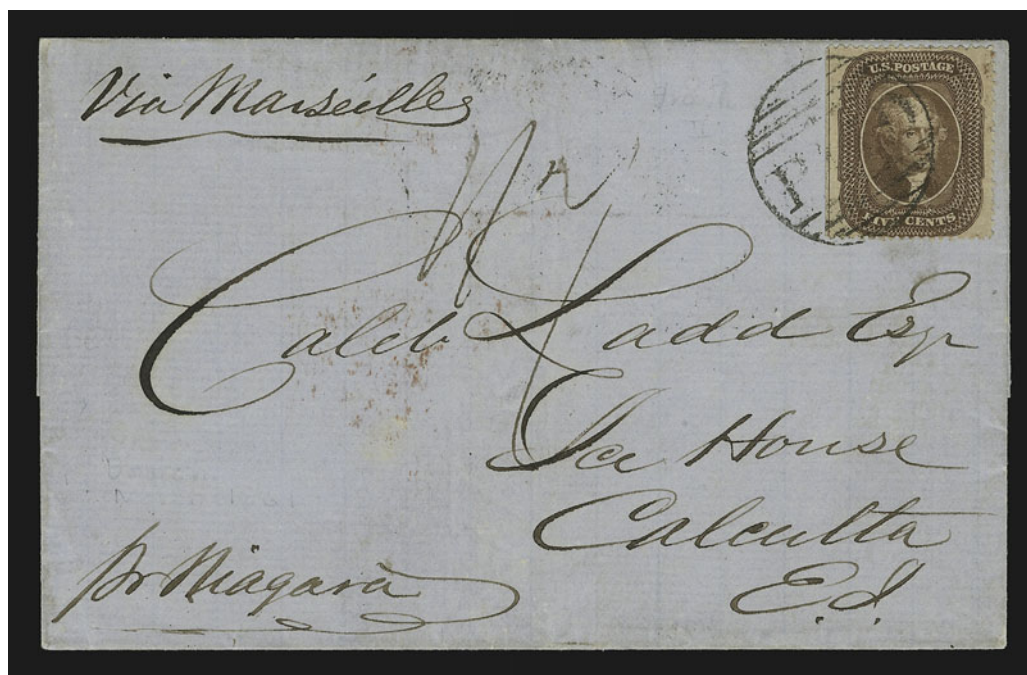 Via Marseilles
U.S. POSTAGE
FIVE CENTS
Caleb Ladd Esqr
Ice House
Calcutta
E.I.
pr Niagara